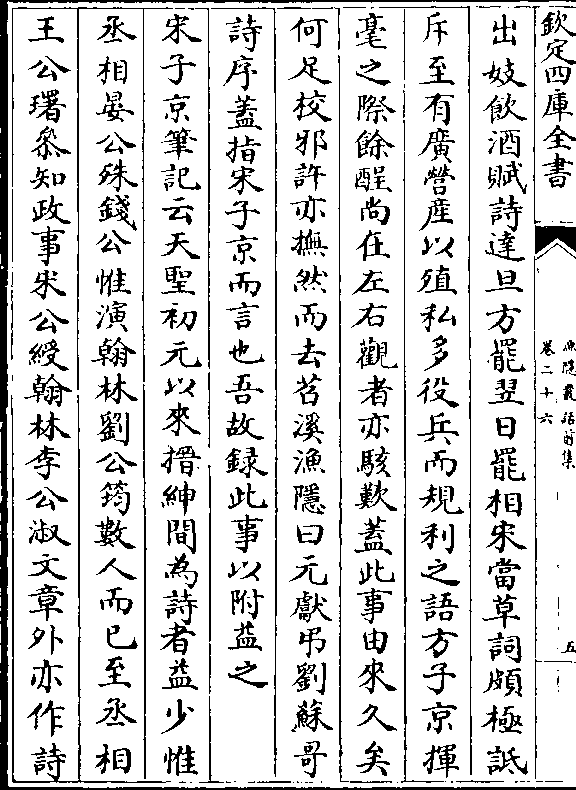 欽定四庫全書
漁隱叢話前集
卷二十六
五
出妓飲酒賦詩達旦方罷翌日罷相宋當草詞頗極詆
斥至有廣營産以殖私多役兵而規利之語方子京揮
毫之際餘酲尚在左右觀者亦駭歎蓋此事由來久矣
何足校邪許亦撫然而去苕溪漁隱曰元獻弔劉蘇哥
詩序蓋指宋子京而言也吾故録此事以附益之
宋子京筆記云天聖初元以來搢紳間為詩者益少惟
丞相晏公殊錢公惟演翰林劉公筠數人而已至丞相
王公曙叅知政事宋公綬翰林李公淑文章外亦作詩